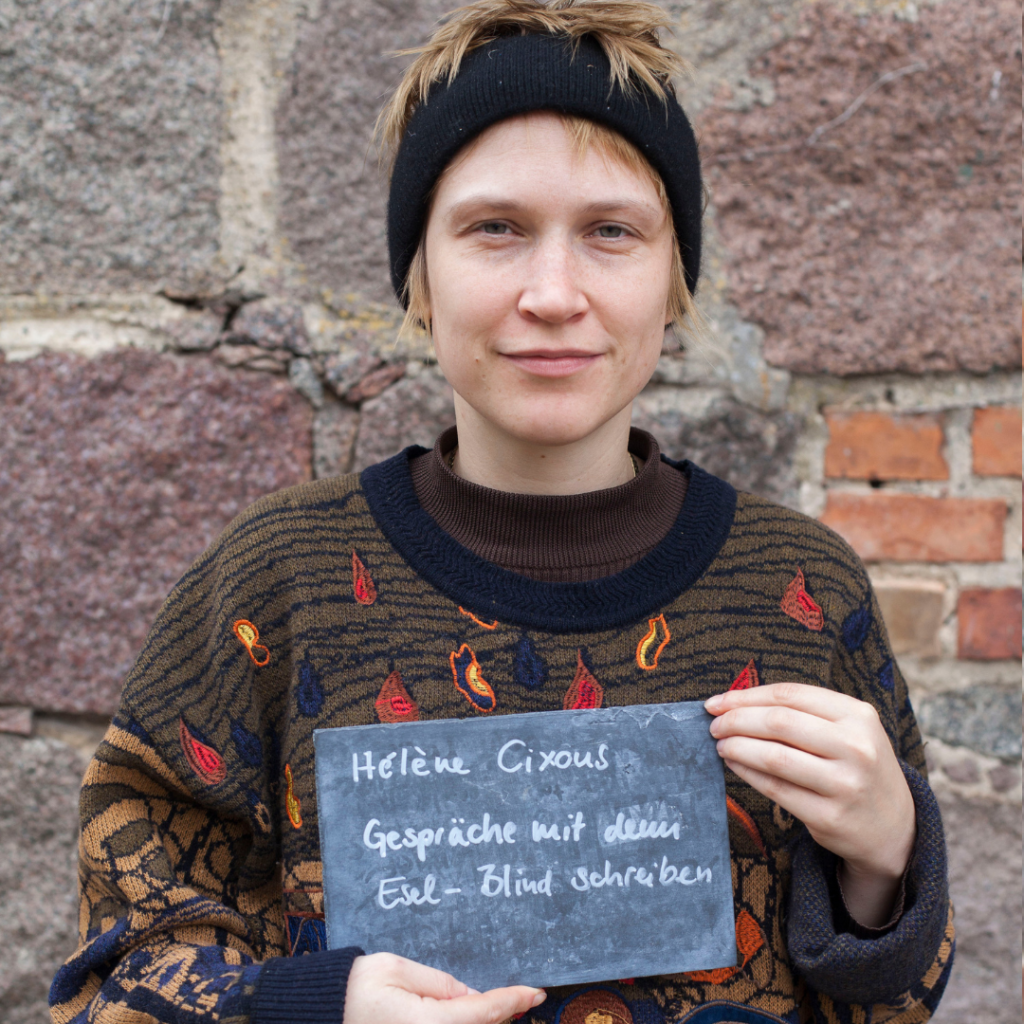 Hélène Cixous
Gespräche mit dem
Esel - Blind schreiben